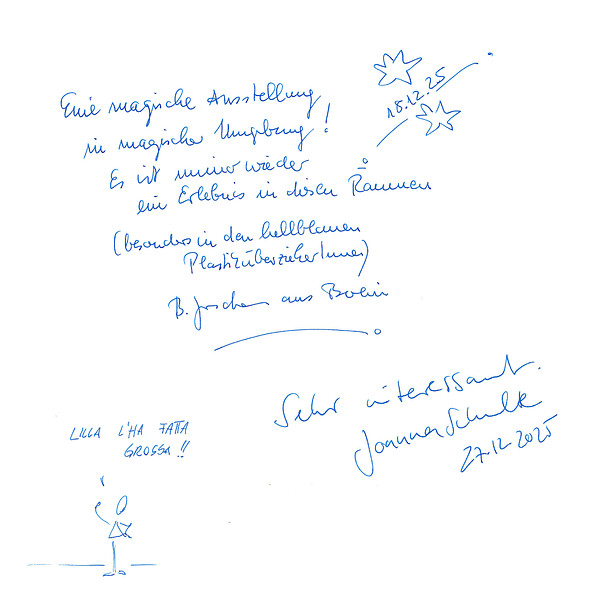 Eine magische Ausstellung
in magischer Umgebung!
Es ist immer wieder
ein Erlebnis in diesen Räumen
(besonders in den hellblauen
PlastiküberzieherInnen)
B. aus Berlin
18.12.25
Sehr interessant.
Joanna Schulk
27.12.2025
LILLA L'HA FATTA
GROSSA!!